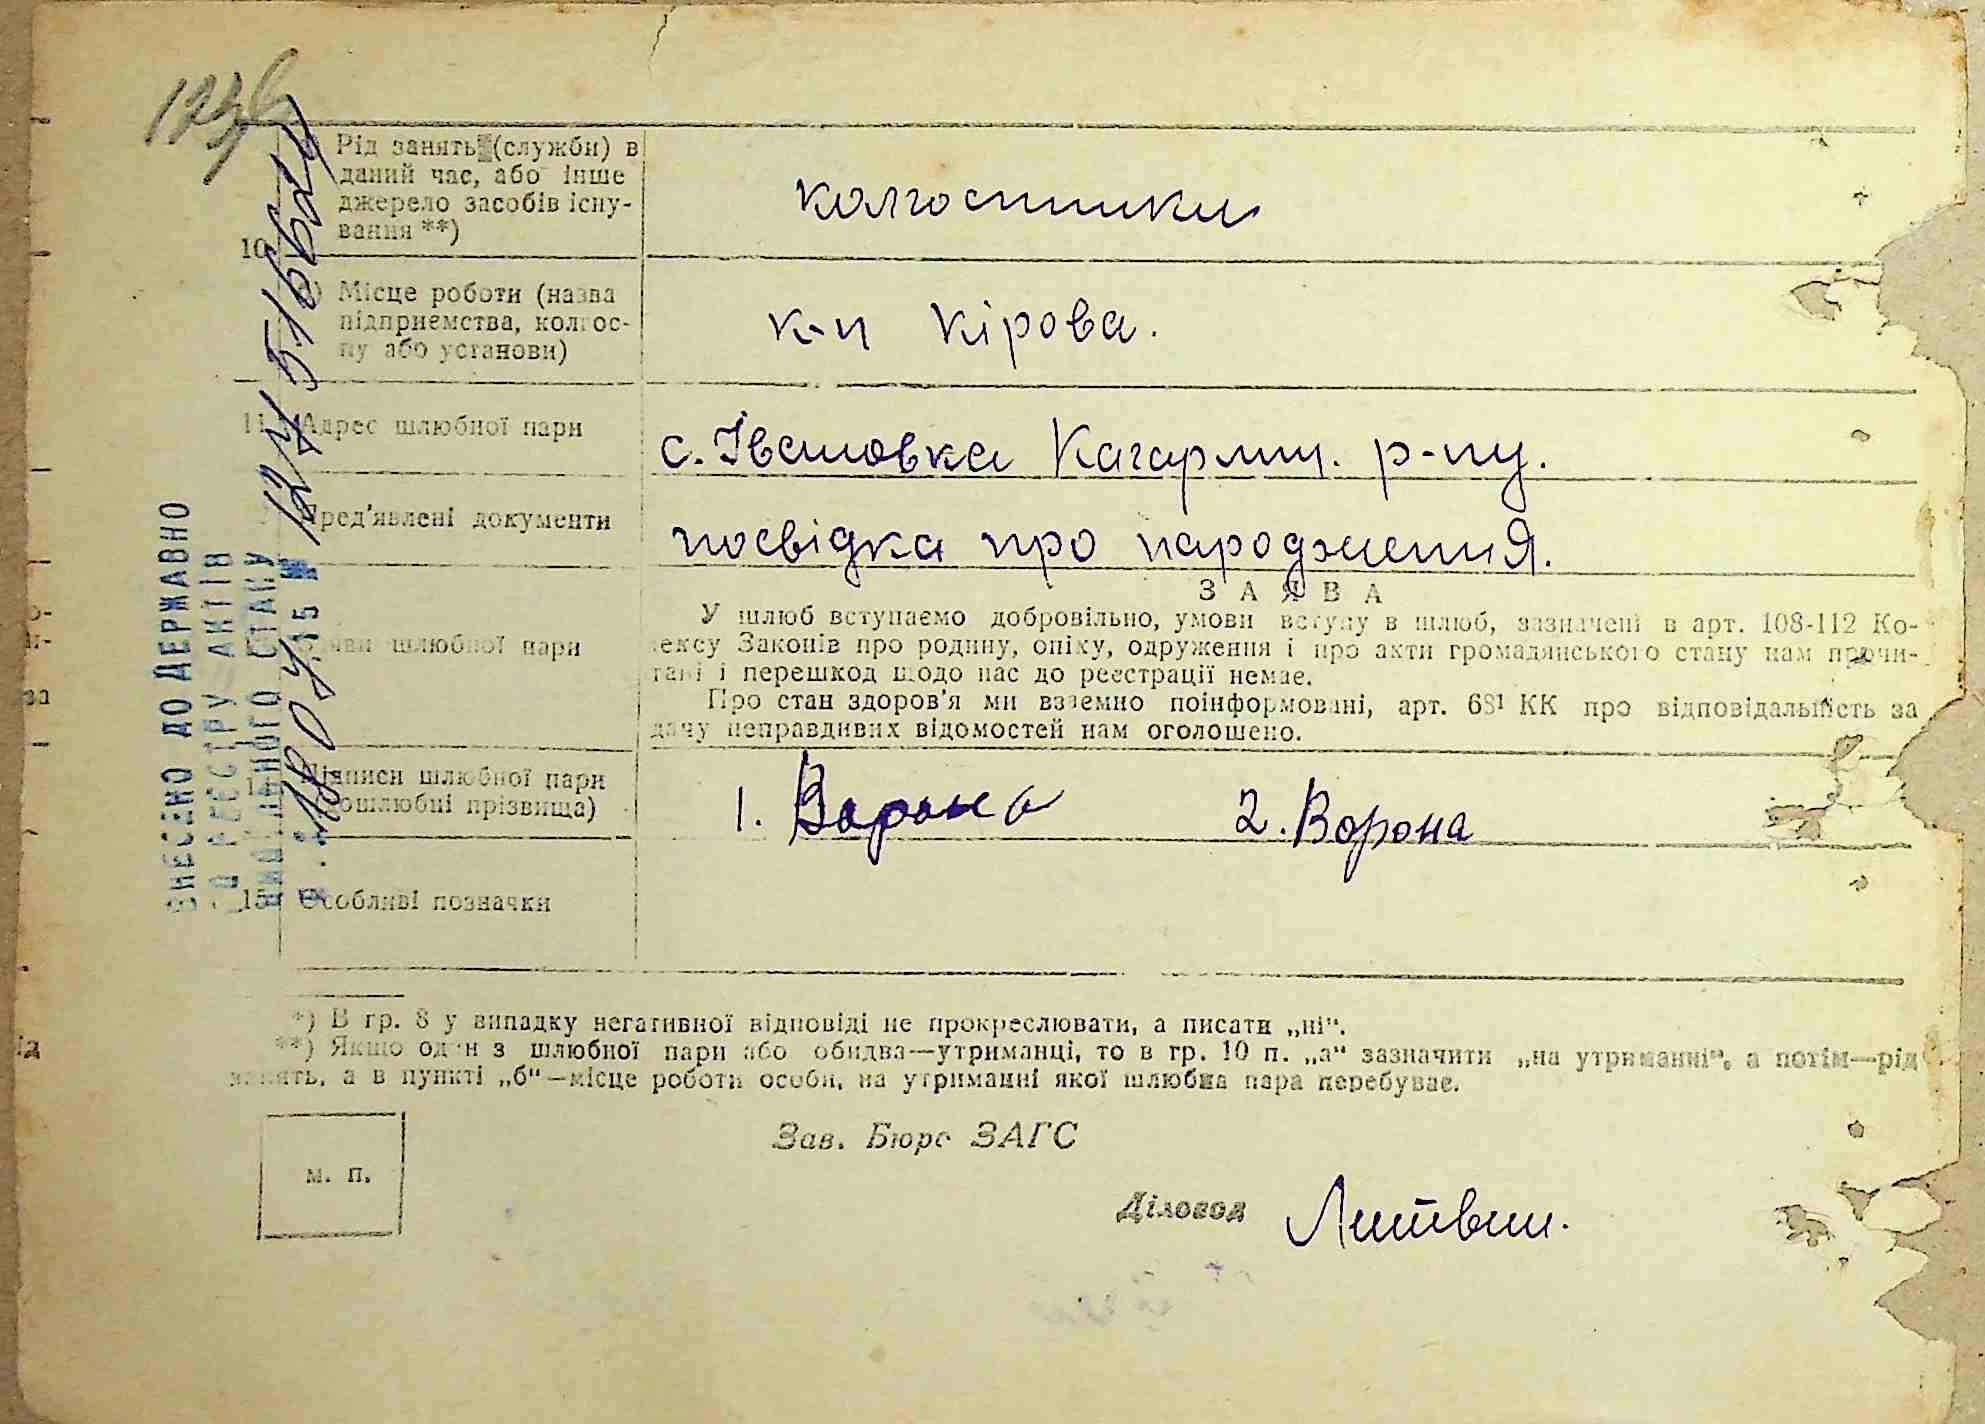 Рід занять (служби) в
даний час, або інше
джерело засобів існу-
вання **)
колгоспники
10
Місце роботи (назва
підприємства, колгос-
пу або установи)
к-п Кірова.
11 Адрес шлюбної пари
с. Івановка Кагарлиц. р-ну.
Пред'явлені документи
посвідка про народження.
ЗАЯВА
Заяви шлюбної пари
У шлюб вступаємо добровільно, умови вступу в шлюб, зазначені в арт. 108-112 Ко-
дексу Законів про родину, опіку, одруження і про акти громадянського стану нам прочи-
тані і перешкод щодо нас до реєстрації немає.
Про стан здоров'я ми взаємно поінформовані, арт. 68¹ КК про відповідальність за
дачу неправдивих відомостей нам оголошено.
Підписи шлюбної пари
(дошлюбні прізвища)
1. Ворона 2. Ворона
15 Особливі позначки
*) В гр. 8 у випадку негативної відповіді не прокреслювати, а писати „ні“.
**) Якщо один з шлюбної пари або обидва—утриманці, то в гр. 10 п. „а“ зазначити „на утриманні“, а потім—рід
занять, а в пункті „б“—місце роботи особи, на утриманні якої шлюбна пара перебуває.
м. п.
Зав. Бюро ЗАГС
Діловод Литвин.
ВНЕСЕНО ДО ДЕРЖАВНО
ГО РЕЄСТРУ АКТІВ
ЦИВІЛЬНОГО СТАНУ